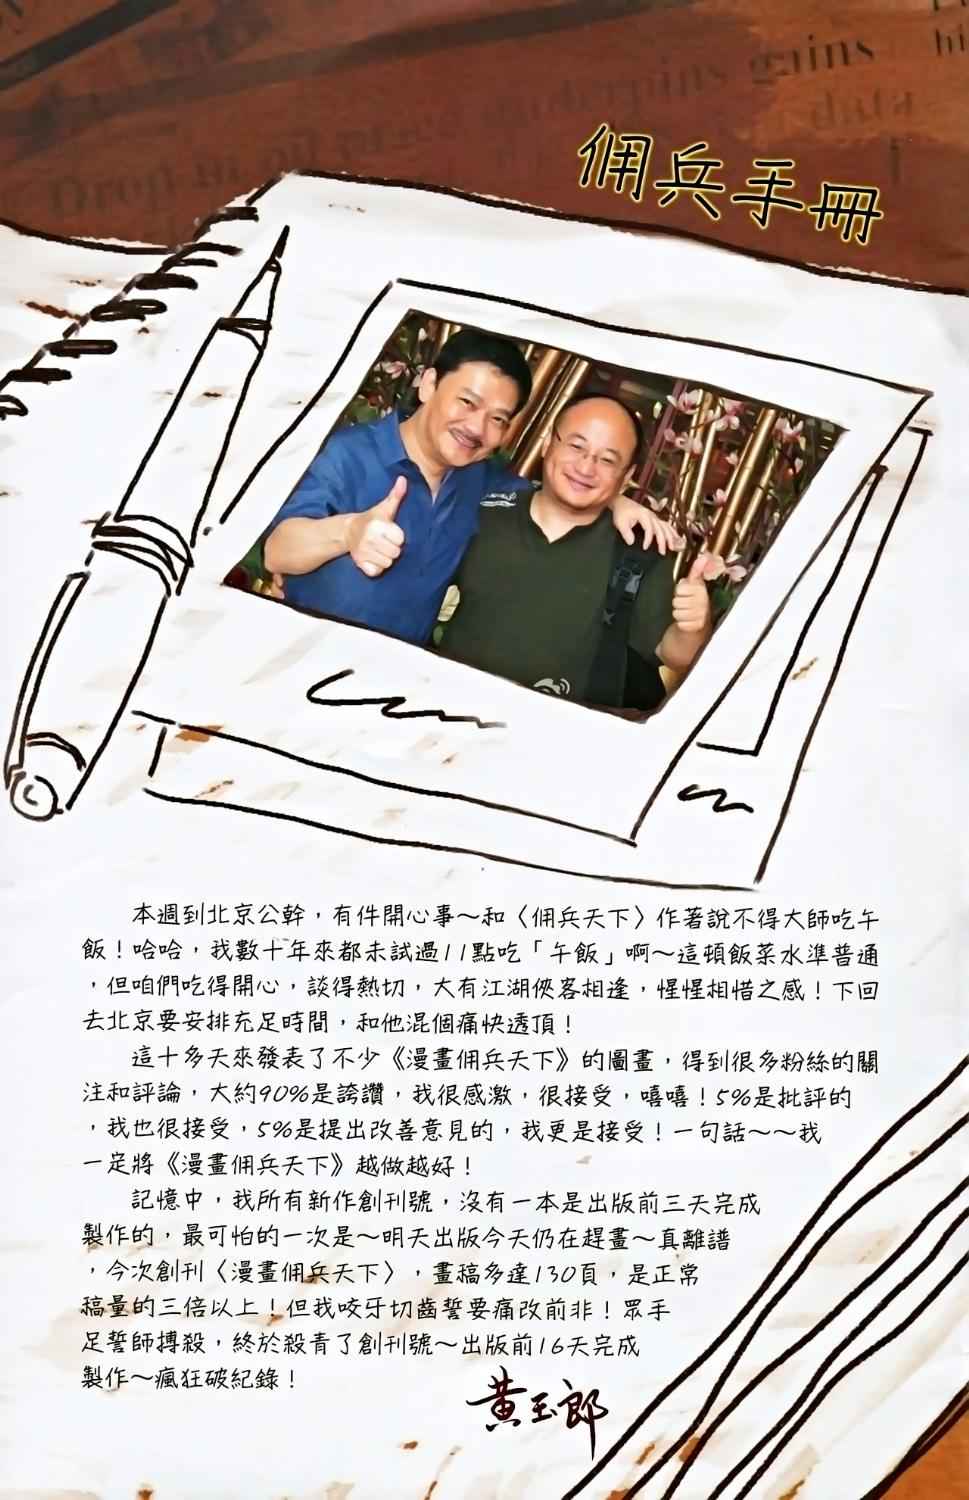 佣兵手冊
本週到北京公幹，有件開心事～和〈佣兵天下〉作著說不得大師吃午
飯！哈哈，我數十年來都未試過11點吃「午飯」啊～這頓飯菜水準普通
，但咱們吃得開心，談得熱切，大有江湖俠客相逢，惺惺相惜之感！下回
去北京要安排充足時間，和他混個痛快透頂！
這十多天來發表了不少《漫畫佣兵天下》的圖畫，得到很多粉絲的關
注和評論，大約90%是誇讚，我很感激，很接受，嘻嘻！5%是批評的
，我也很接受，5%是提出改善意見的，我更是接受！一句話～～我
一定將《漫畫佣兵天下》越做越好！
記憶中，我所有新作創刊號，沒有一本是出版前三天完成
製作的，最可怕的一次是～明天出版今天仍在趕畫～真離譜
，今次創刊〈漫畫佣兵天下〉，畫稿多達130頁，是正常
稿量的三倍以上！但我咬牙切齒誓要痛改前非！眾手
足誓師搏殺，終於殺青了創刊號～出版前16天完成
製作～瘋狂破紀錄！
黃玉郎